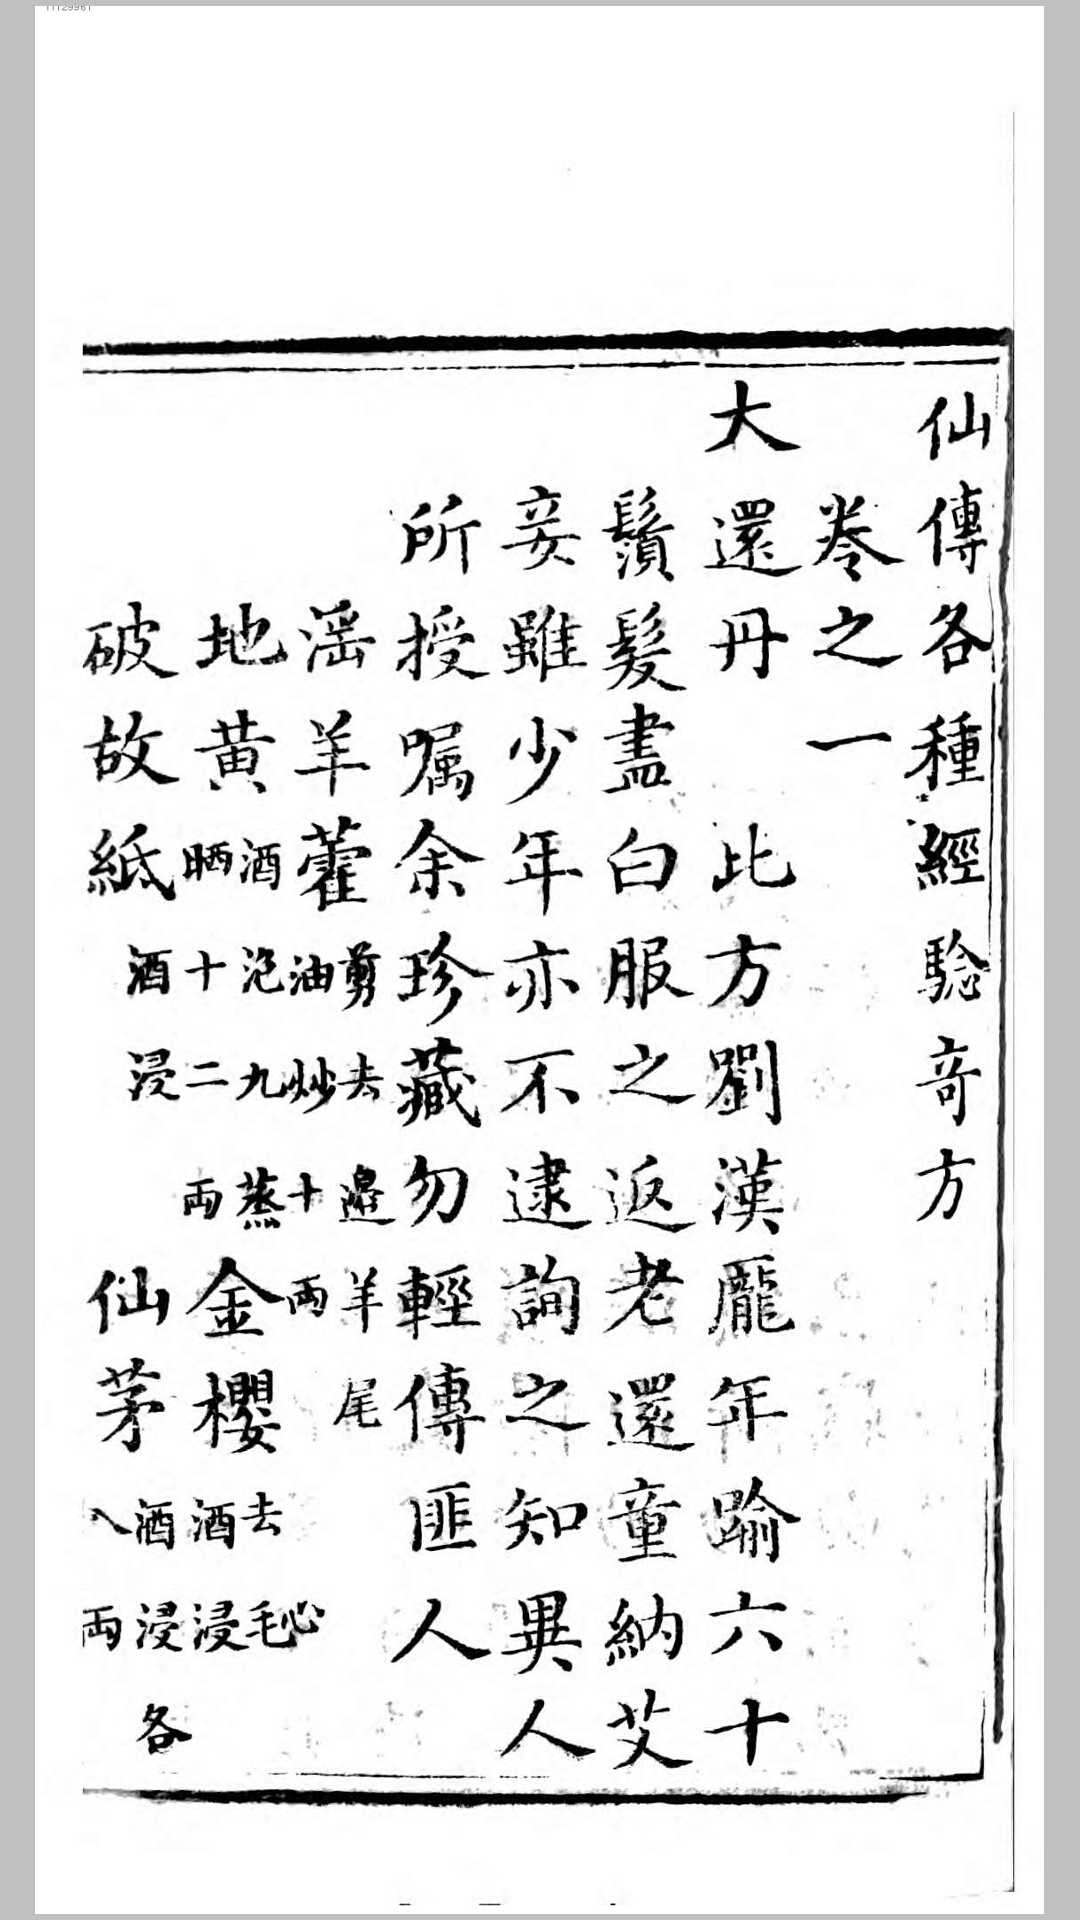 仙傳各種經驗奇方
卷之一
大還丹 此方劉漢龎年踰六十
鬚髮盡白服之返老還童納艾
妾雖少年亦不逮詢之知異人
所授嘱余珍藏勿輕傳匪人
淫羊藿剪去邉羊尾油炒十両
地黃酒泡九蒸晒十二両 金櫻去毛心酒浸
破故紙酒浸 仙茅酒浸各八両